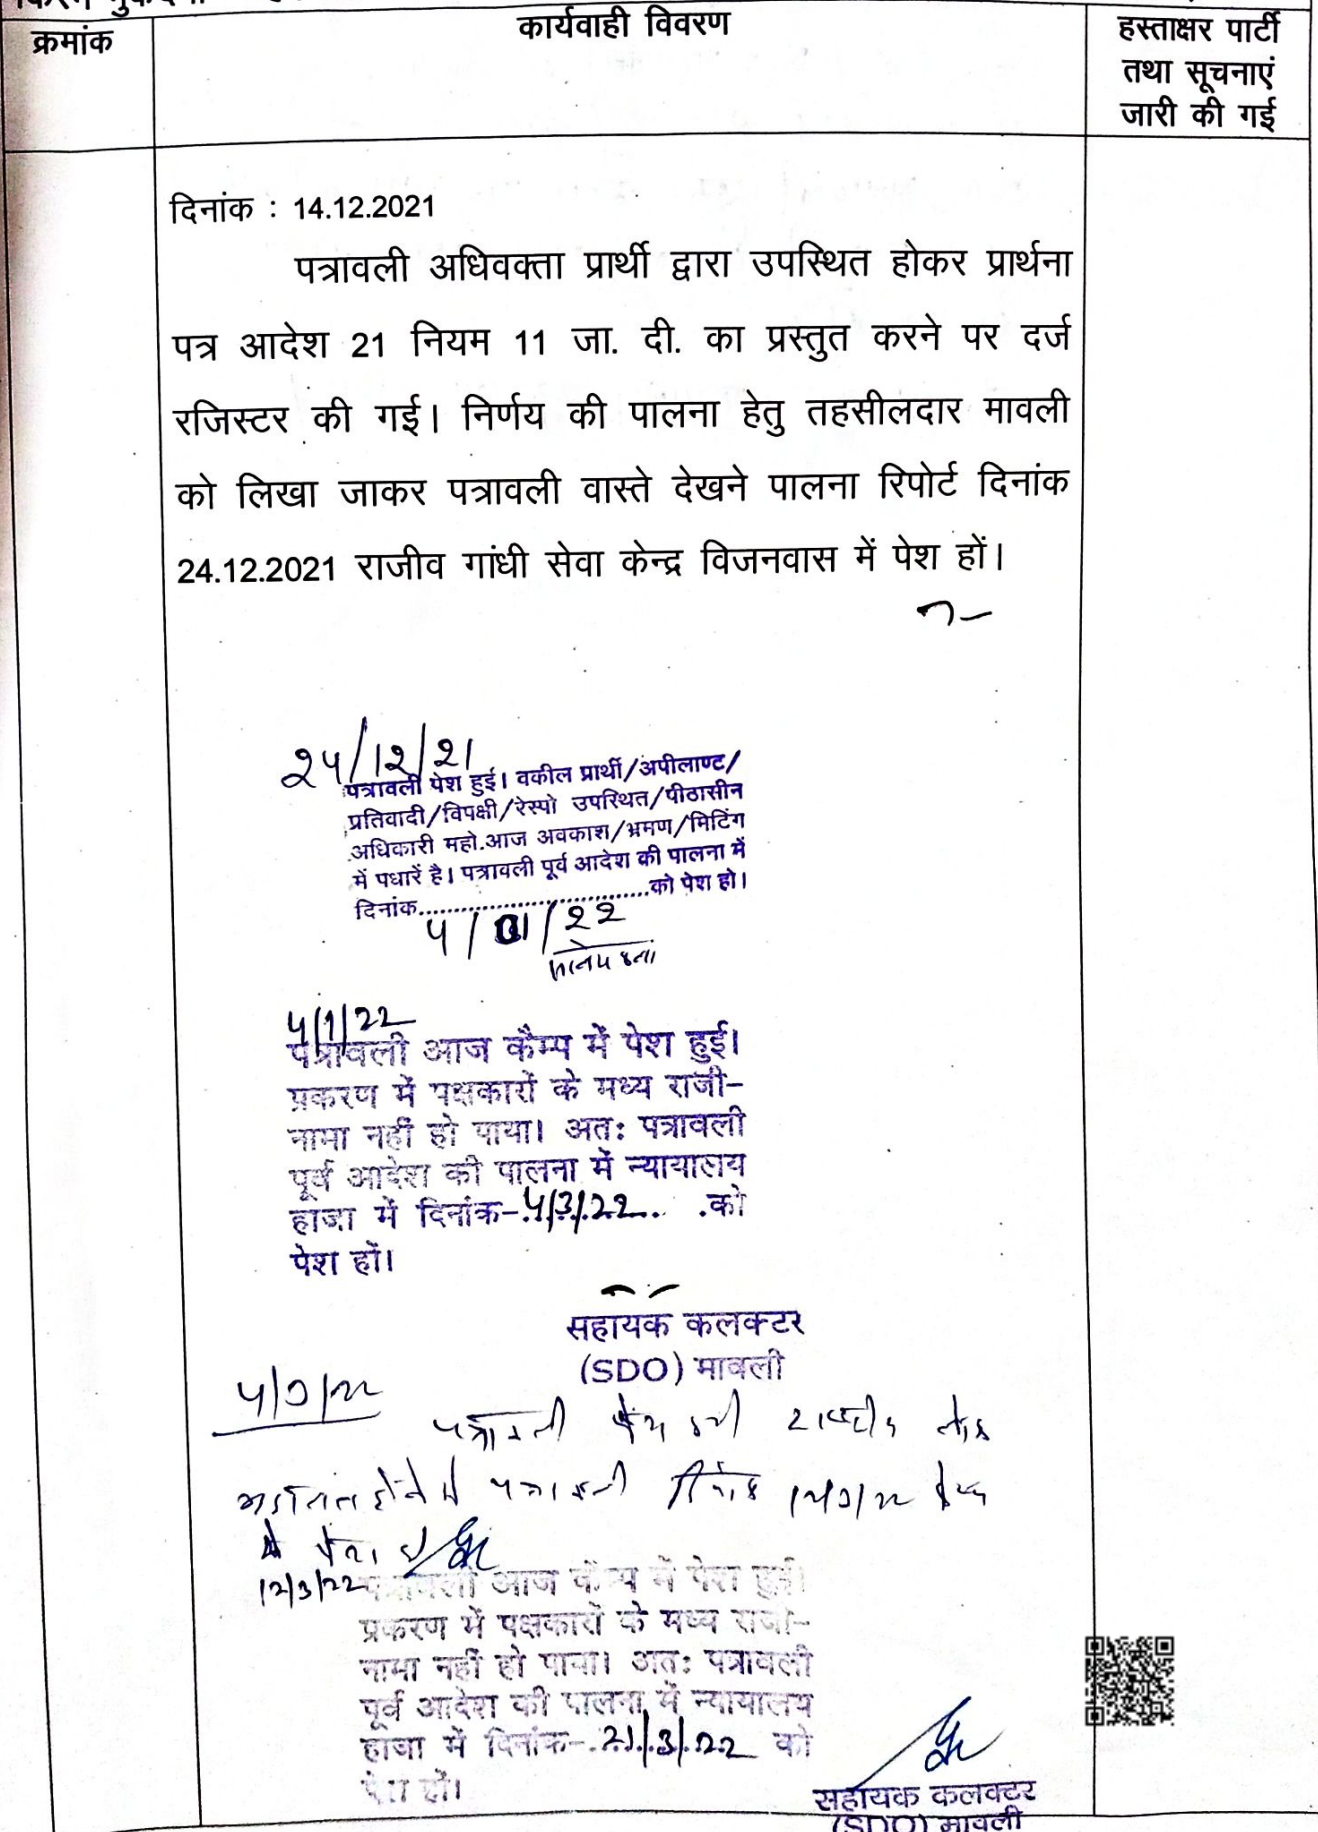 क्रमांक
कार्यवाही विवरण
हस्ताक्षर पार्टी
तथा सूचनाएं
जारी की गई
दिनांक : 14.12.2021
पत्रावली अधिवक्ता प्रार्थी द्वारा उपस्थित होकर प्रार्थना
पत्र आदेश 21 नियम 11 जा. दी. का प्रस्तुत करने पर दर्ज
रजिस्टर की गई। निर्णय की पालना हेतु तहसीलदार मावली
को लिखा जाकर पत्रावली वास्ते देखने पालना रिपोर्ट दिनांक
24.12.2021 राजीव गांधी सेवा केन्द्र विजनवास में पेश हों।
24/12/21
पत्रावली पेश हुई। वकील प्रार्थी/अपीलाण्ट/
प्रतिवादी/विपक्षी/रेस्पो उपस्थित/पीठासीन
अधिकारी महो.आज अवकाश/भ्रमण/मिटिंग
में पधारें है। पत्रावली पूर्व आदेश की पालना में
दिनांक..............................को पेश हो।
4/01/22
4/1/22
पत्रावली आज कैम्प में पेश हुई।
प्रकरण में पक्षकारों के मध्य राजी-
नामा नहीं हो पाया। अतः पत्रावली
पूर्व आदेश की पालना में न्यायालय
हाजा में दिनांक-4/3/22 को
पेश हों।
सहायक कलक्टर
(SDO) मावली
4/3/22
पत्रावली पेश हुयी राष्ट्रीय लोक
पत्रावली दिनांक 12/3/22
पेश हो
12/3/22
पत्रावली आज कैम्प में पेश हुई।
प्रकरण में पक्षकारों के मध्य राजी-
नामा नहीं हो पाया। अतः पत्रावली
पूर्व आदेश की पालना में न्यायालय
हाजा में दिनांक-21/3/22 को
पेश हों।
सहायक कलक्टर
(SDO) मावली